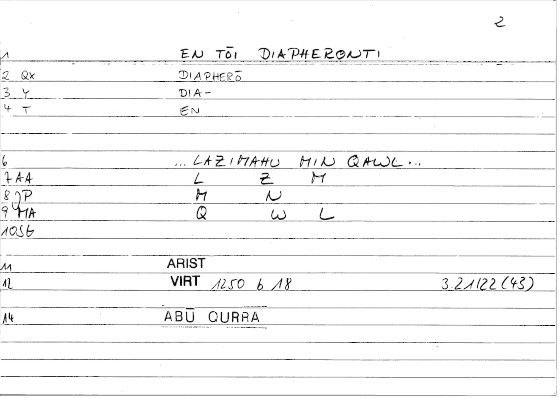 2
1 EN TŌI DIAPHERONTI
2 QX DIAPHERŌ
3 Y DIA-
4 T EN
6 ... LAZIMAHU MIN QAWL...
7 AA L Z M
8 JP M N
9 MA Q W L
10 SG
11 ARIST
12 VIRT 1250 b 18 3.21/22 (43)
14 ABŪ QURRA